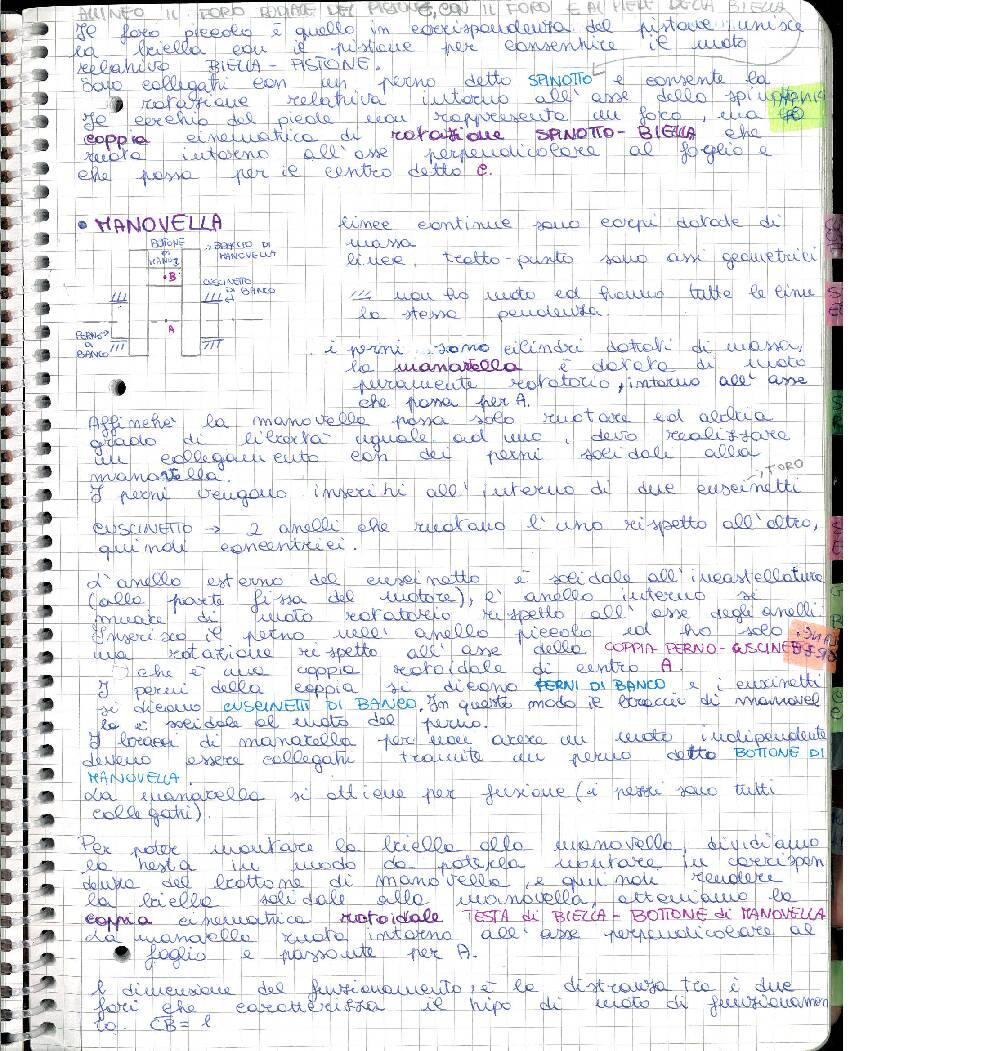 ALLINEO IL FORO RADIALE DEL PISTONE, CON IL FORO E AL PIEDE DELLA BIELLA
Il foro piccolo è quello in corrispondenza del pistone unisce
la biella con il pistone per consentire il moto
relativo BIELLA - PISTONE.
Sono collegati con un perno detto SPINOTTO e consente la
rotazione relativa intorno all'asse dello spinotto
Il cerchio del piede non rappresenta un foro, ma
coppia cinematica di rotazione SPINOTTO - BIELLA che
ruota intorno all'asse perpendicolare al foglio e
che passa per il centro detto C.
• MANOVELLA
linee continue sono corpi dotate di
massa
linee tratto-punto sono assi geometrici
non ho moto ed hanno tutte le linee
la stessa pendenza.
BOTTONE
di
MANOV
BRACCIO DI
MANOVELLA
B
CUSCINETTO
di BANCO
A
PERNO
di
BANCO
i perni sono cilindri dotati di massa,
la manovella è dotata di moto
puramente rotatorio, intorno all'asse
che passa per A.
Affinché la manovella possa solo ruotare ed abbia
grado di libertà uguale ad uno, devo realizzare
un collegamento con dei perni solidali alla
manovella.
I perni vengono inseriti all'interno di due cuscinetti
, TORO
CUSCINETTO → 2 anelli che ruotano l'uno rispetto all'altro,
quindi concentrici.
L'anello esterno del cuscinetto è solidale all'incastellatura
(alla parte fissa del motore), l'anello interno si
muove di moto rotatorio rispetto all'asse degli anelli
Inserisco il perno nell'anello piccolo ed ho solo
una rotazione rispetto all'asse della COPPIA PERNO-CUSCINETTO
che è una coppia rotoidale di centro A.
I perni della coppia si dicono PERNI DI BANCO e i cuscinetti
si dicono CUSCINETTI DI BANCO. In questo modo il bracci di manovel
la è solidale al moto del perno.
I bracci di manovella per non avere un moto indipendente
devono essere collegati tramite un perno detto BOTTONE DI
MANOVELLA.
La manovella si ottiene per fusione (i pezzi sono tutti
collegati).
Per poter montare la biella alla manovella, dividiamo
la testa in modo da poterla montare in corrispon
denza del bottone di manovella, e quindi rendere
la biella solidale alla manovella, otteniamo la
coppia cinematica rotoidale TESTA di BIELLA - BOTTONE di MANOVELLA
La manovella ruota intorno all'asse perpendicolare al
foglio e passante per A.
dimensione del funzionamento, è la distanza tra i due
fori che caratterizza il tipo di moto di funzionamen
to. CB = l